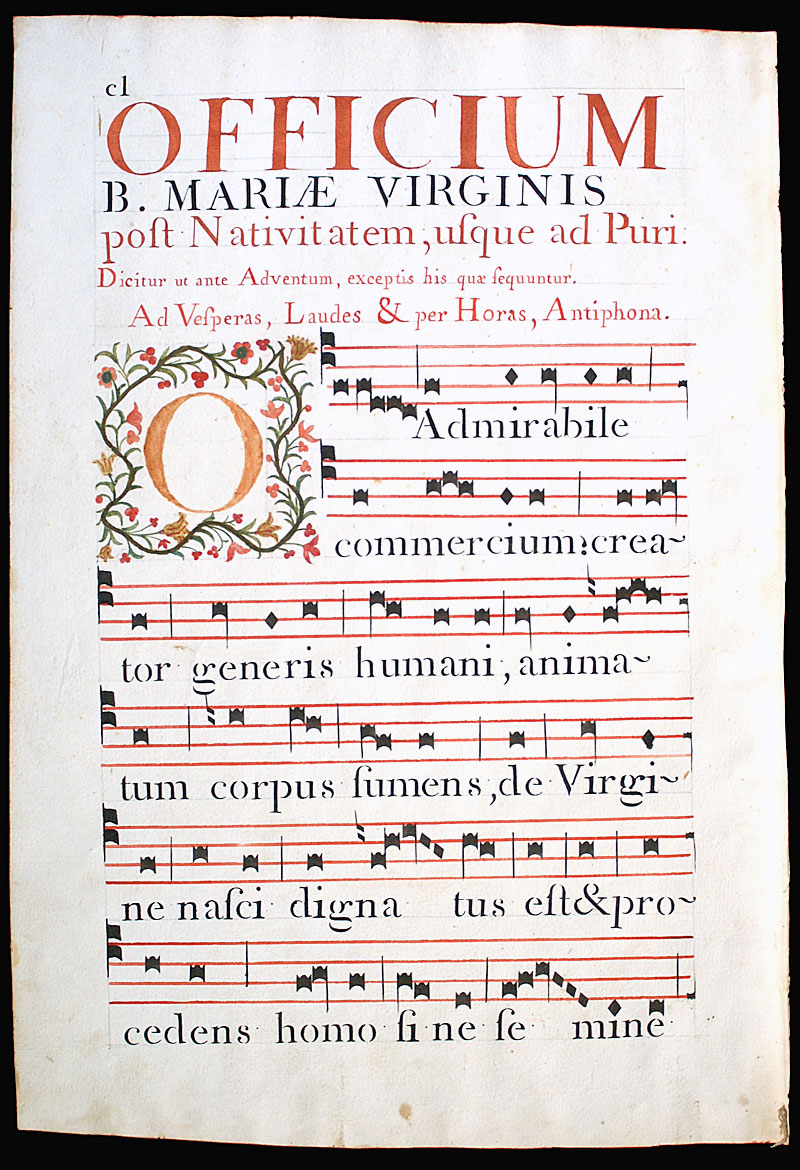 cl
OFFICIUM
B. MARIÆ VIRGINIS
poſt Nativitatem, uſque ad Puri.
Dicitur ut ante Adventum, exceptis his quæ ſequuntur.
Ad Veſperas, Laudes & per Horas, Antiphona.
O Admirabile
commercium: crea~
tor generis humani, anima~
tum corpus ſumens, de Virgi~
ne naſci digna tus eſt & pro~
cedens homo ſi ne ſe mine